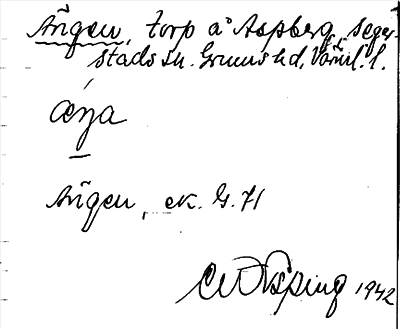 Ängen, torp å Aspberg, Seger-
stads sn. Grums hd, Värml. l.
æŋa
Ängen, ek. G. 71
1942